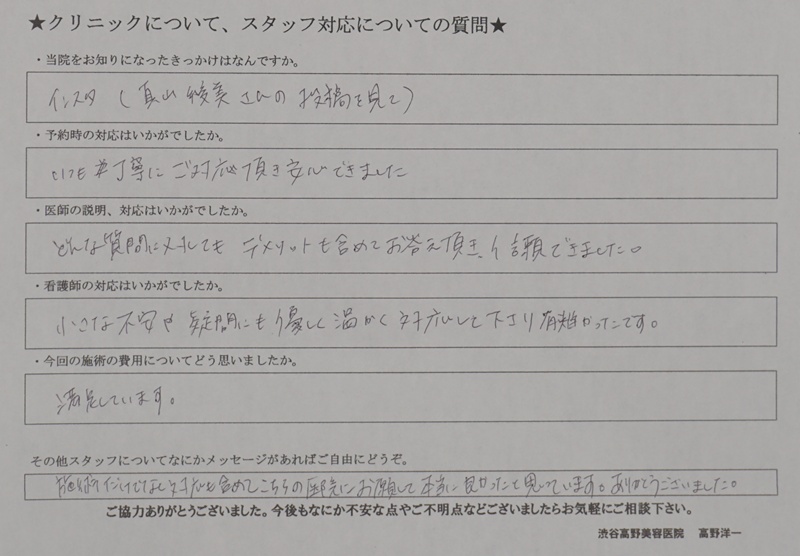 ★クリニックについて、スタッフ対応についての質問★
・当院をお知りになったきっかけはなんですか。
インスタ (真山 綾美 さんの 投稿を見て)
・予約時の対応はいかがでしたか。
いつも丁寧に ご対応頂き安心できました
・医師の説明、対応はいかがでしたか。
どんな質問に対しても デメリットも含めてお答え頂き、信頼できました。
・看護師の対応はいかがでしたか。
小さな不安や疑問にも優しく温かく対応して下さり有難かったです。
・今回の施術の費用についてどう思いましたか。
満足しています。
その他スタッフについてなにかメッセージがあればご自由にどうぞ。
施術だけでなく対応も含めてこちらの医院にお願して本当に良かったと思っています。ありがとうございました。
ご協力ありがとうございました。今後もなにか不安な点やご不明点などございましたらお気軽にご相談下さい。
渋谷高野美容医院 高野洋一